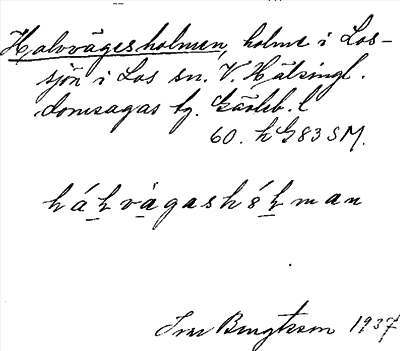 Halvvägesholmen, holme i Los-
sjön i Los sn. V. Hälsingl.
domsagas tg. Gävleb. l
60. h G 83 SM.
håhvagashéhman
Bengtsson 1937